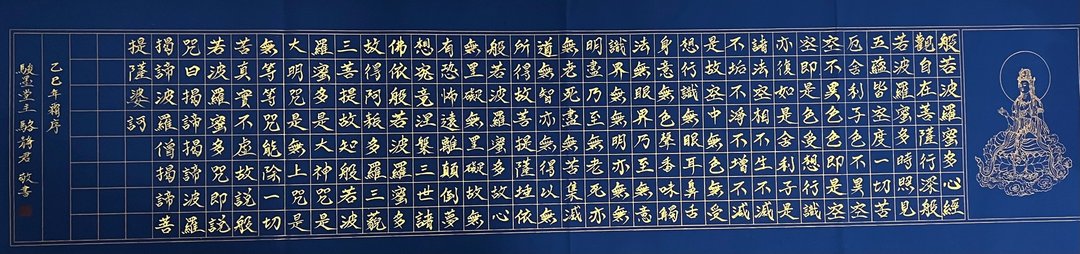 般若波羅蜜多心經
觀自在菩薩行深般
若波羅蜜多時照見
五蘊皆空度一切苦
厄舍利子色不異空
空不異色色即是空
空即是色受想行識
亦復如是舍利子是
諸法空相不生不滅
不垢不淨不增不減
是故空中無色無受
想行識無眼耳鼻舌
身意無色聲香味觸
法無眼界乃至無意
識界無無明亦無無
明盡乃至無老死亦
無老死盡無苦集滅
道無智亦無得以無
所得故菩提薩埵依
般若波羅蜜多故心
無罣礙無罣礙故無
有恐怖遠離顛倒夢
想究竟涅槃三世諸
佛依般若波羅蜜多
故得阿耨多羅三藐
三菩提故知般若波
羅蜜多是大神咒是
大明咒是無上咒是
無等等咒能除一切
苦真實不虛故說般
若波羅蜜多咒即說
咒曰揭諦揭諦波羅
揭諦波羅僧揭諦菩
提薩婆訶
乙巳年菊序
駿墨堂主 駱蔣君 敬書